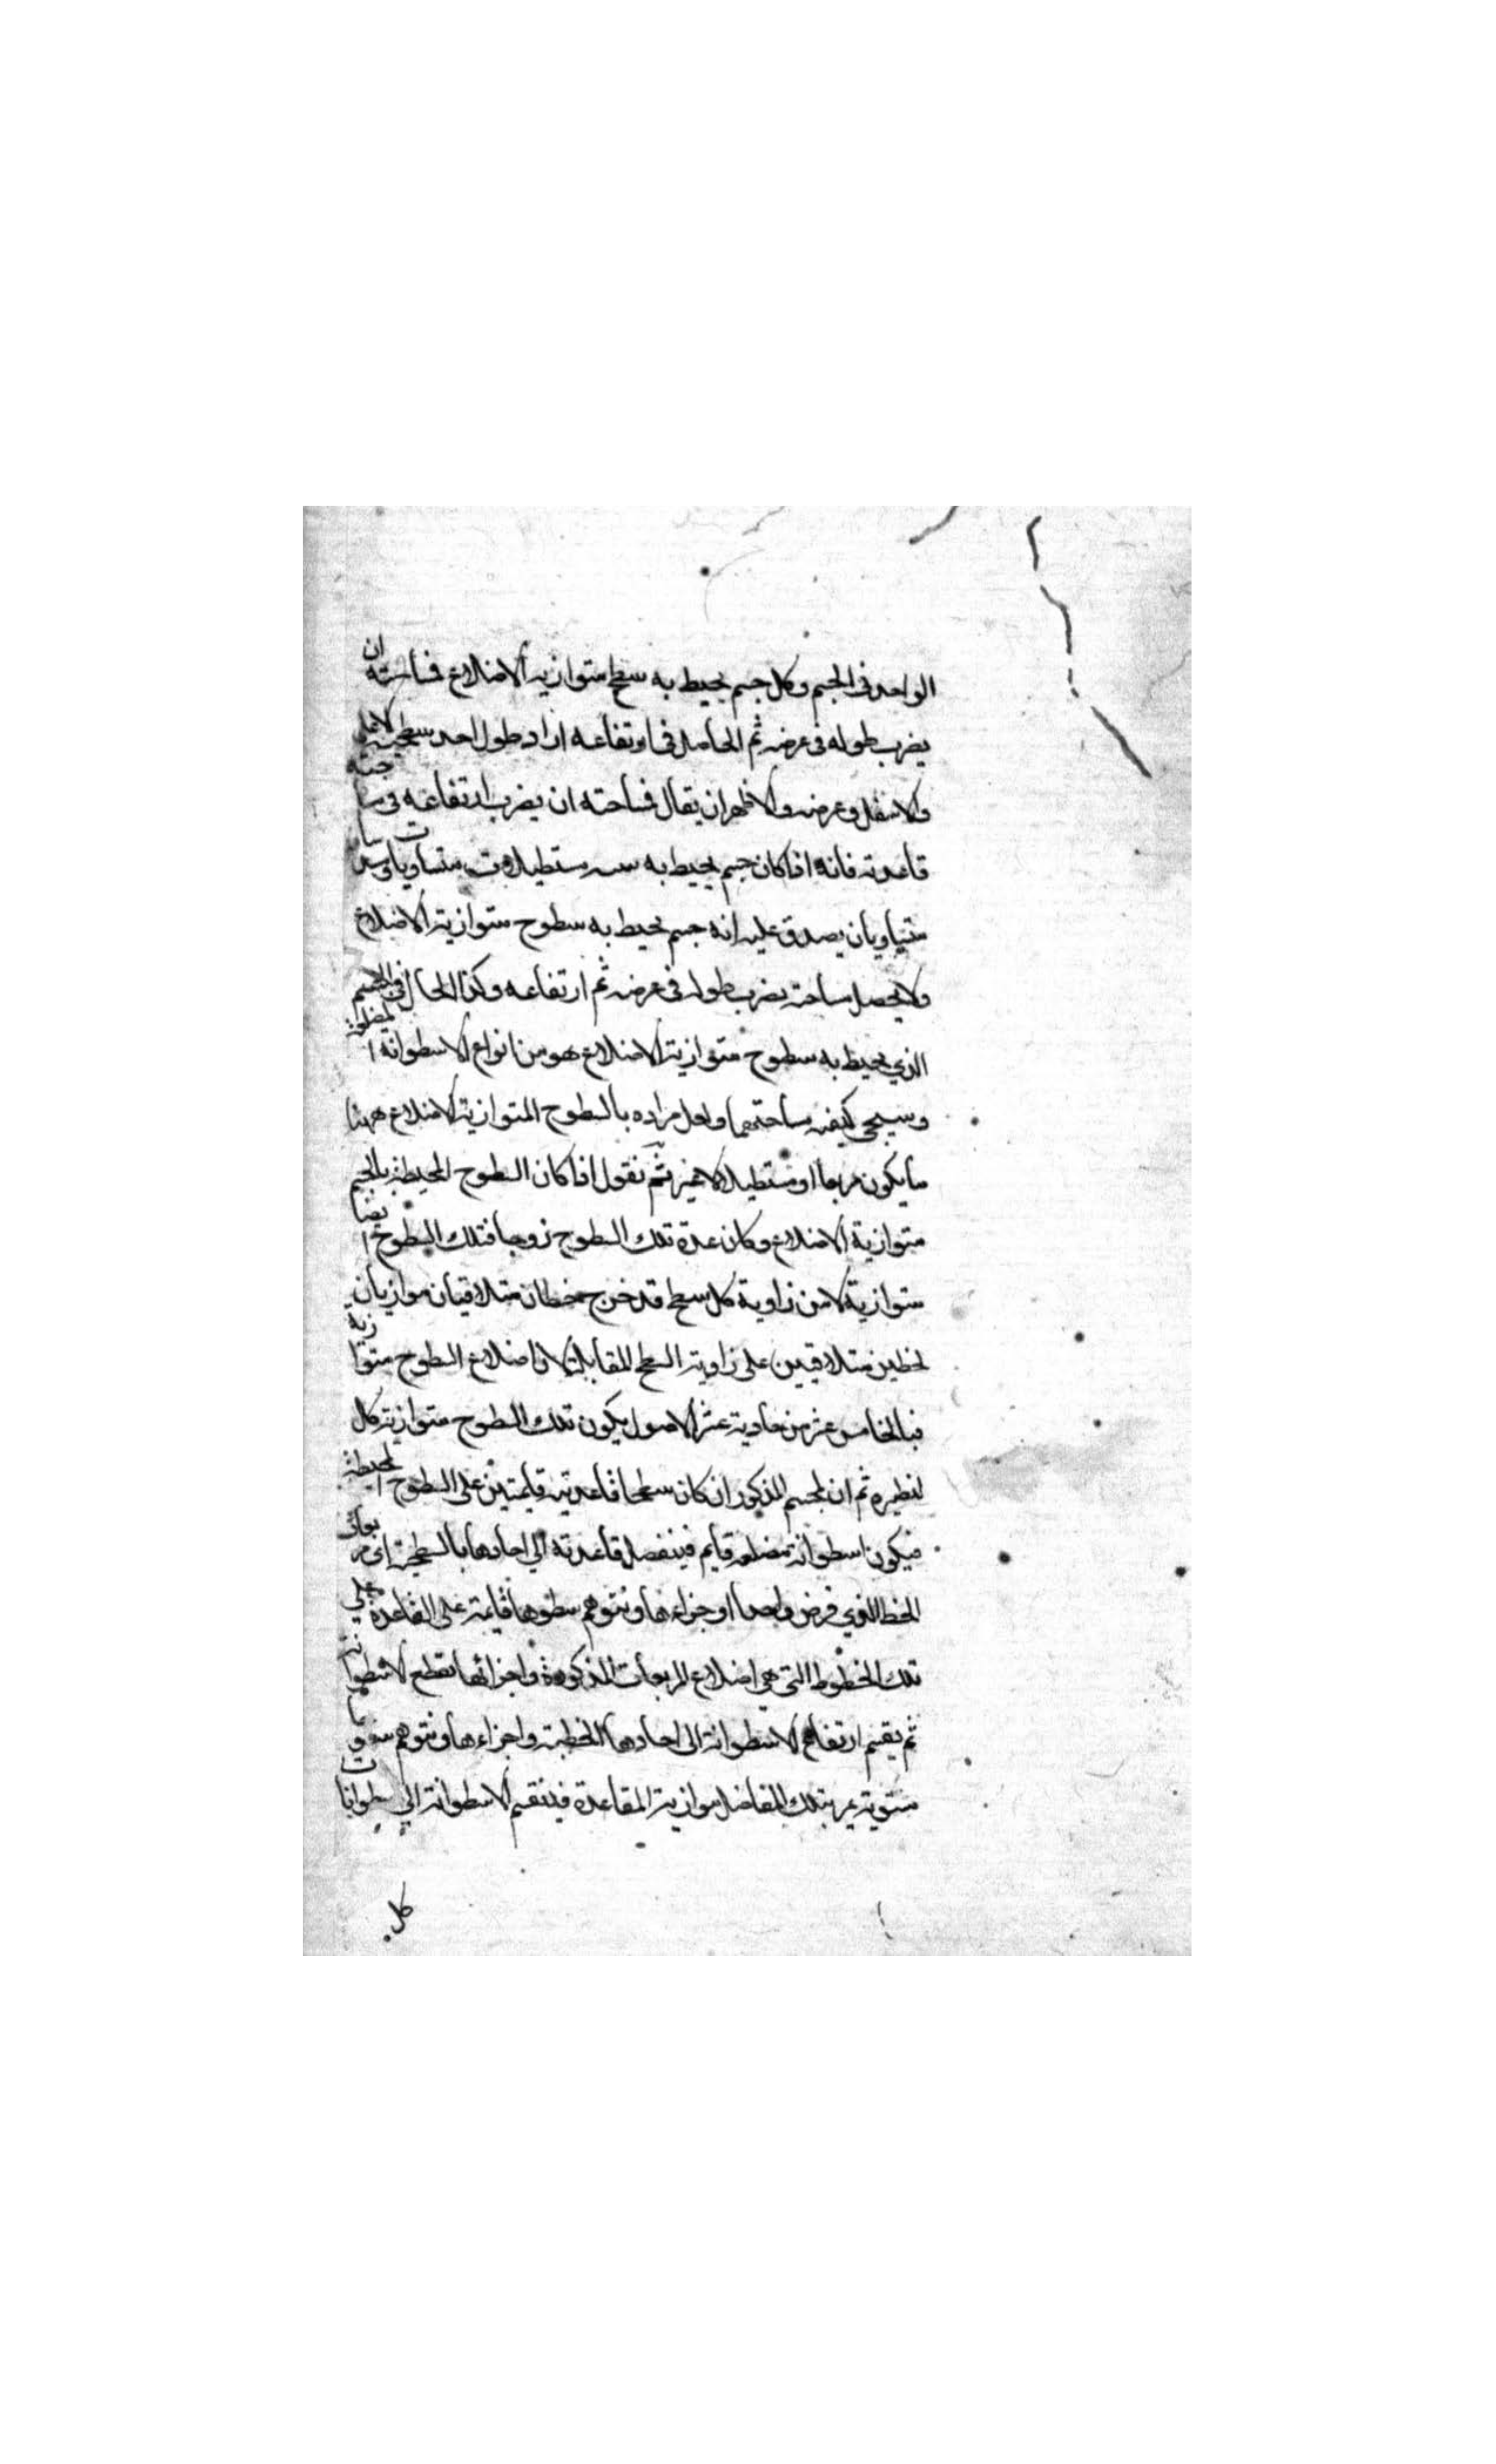 الواحد فى الجسم وكل جسم يحيط به سطح متوازية الاضلاع فمساحته ان
يضرب طوله فى عرضه ثم الحاصل فى ارتفاعه اراد طول احد سطحيه الاعلى
والاسفل وعرضه والاظهر ان يقال فمساحته ان يضرب ارتفاعه فى مساحته
قاعدته فانه اذا كان جسم يحيط به مستطيلات متساويات
متساويان يصدق عليه انه جسم يحيط به سطوح متوازية الاضلاع
ولا يحصل مساحته بضرب طوله فى عرضه ثم ارتفاعه وكذا الحال فى الجسم
الذي يحيط به سطوح متوازية الاضلاع هو من انواع الاسطوانة المضلعة
وسيجى كيفية مساحتهما ولعل مراده بالسطوح المتوازية الاضلاع ههنا
ما يكون مربعا او مستطيلا لا غير ثم نقول اذا كان السطوح المحيطة بالجسم
متوازية الاضلاع وكان عدة تلك السطوح زوجا فتلك السطوح ايضا
متوازية لان من زاوية كل سطح قد خرج خطان متلاقيان موازيان
لخطين متلاقيين على زاوية السطح المقابل لان اضلاع السطوح متوازية
فبالخامس عشر من حادية عشر الاصول يكون تلك السطوح متوازية كل
لنظيره ثم ان الجسم المذكور ان كان سطحا قاعدتيه قايمتين على السطوح المحيطة
فيكون اسطوانة مضلعة قايم فينفصل قاعدته الى احادها بالسطحية اى مربعات
الخط الذي فرض واحدا او جزاءها ونتوهم سطوحا قايمة على القاعدة على
تلك الخطوط التى هى اضلاع المربعات المذكورة واجزائها تقطع الاسطوانة
ثم يقسم ارتفاع الاسطوانة الى احادها الخطية واجزاءها ونتوهم سطوحا
مستوية يمر بتلك المفاصل موازية القاعدة فينقسم الاسطوانة الى اسطوانات
كل